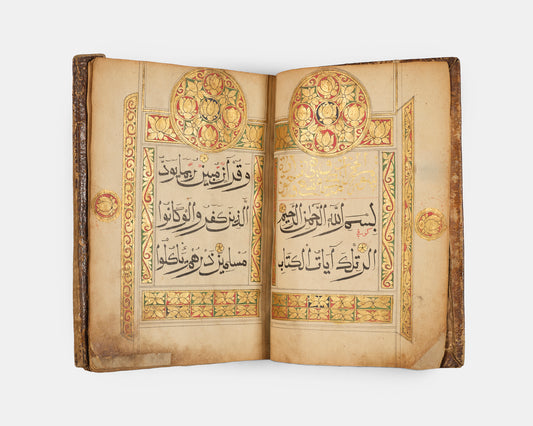 بسم الله الرحمن الرحيم
الر تلك آيات الكتاب
وقرآن مبين ربما يود
الذين كفروا لو كانوا
مسلمين ذرهم يأكلوا